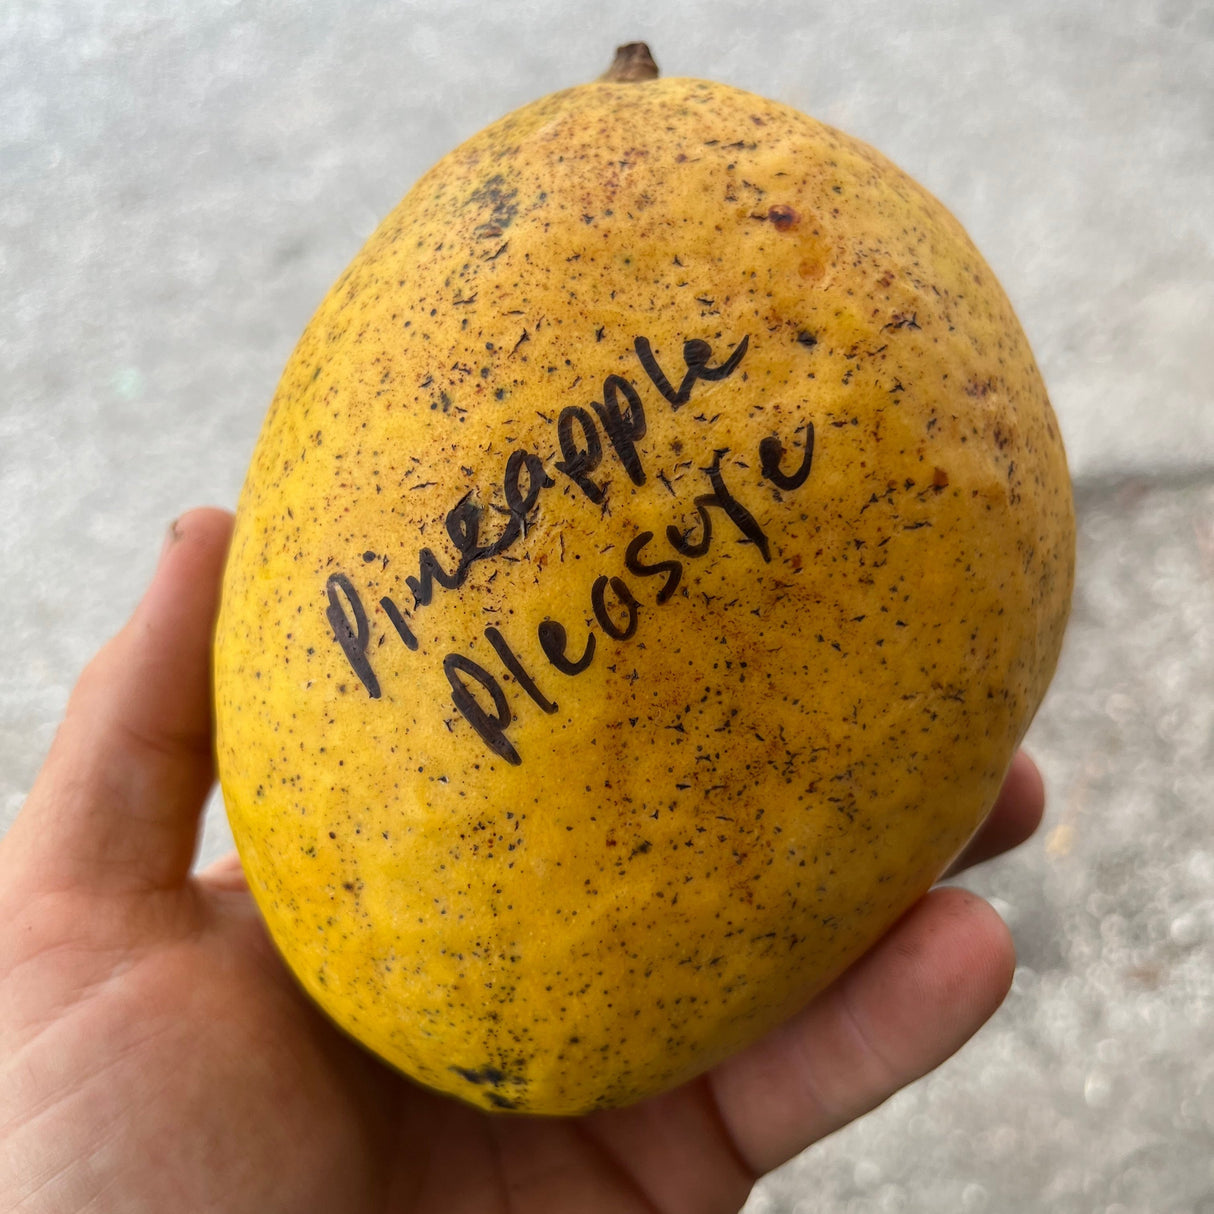 Pineapple
pleasure